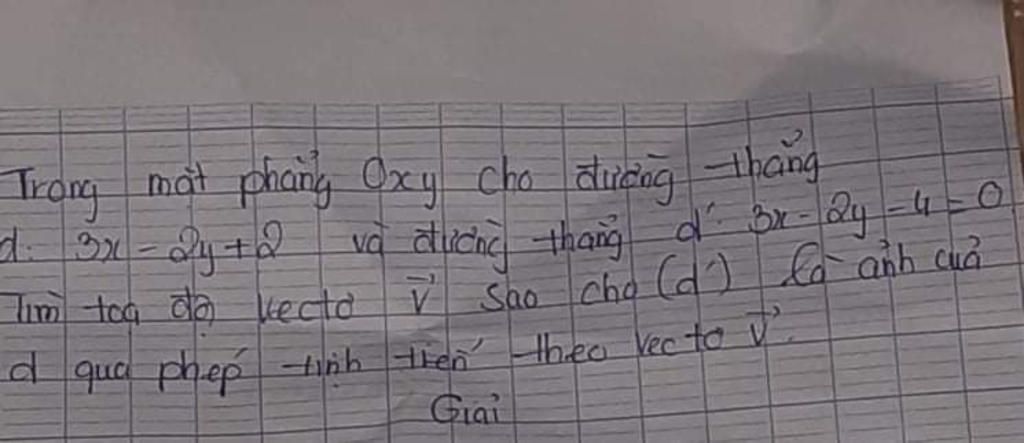 Trong mặt phẳng Oxy cho đường thẳng
d: 3x - 2y + 2 và đường thẳng d': 3x - 2y - 4 = 0
Tìm toạ độ vectơ v⃗ sao cho (d') là ảnh của
d qua phép tịnh tiến theo vec tơ v⃗.
Giải